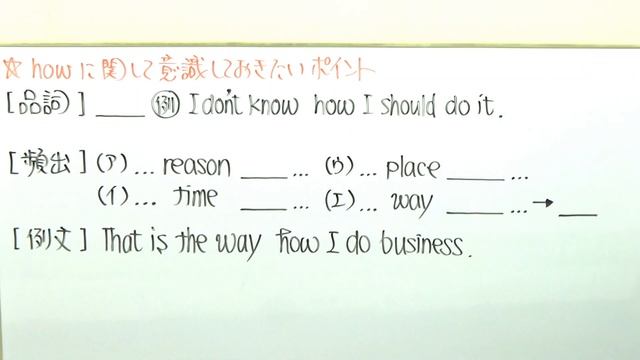 ☆ howに関して意識しておきたいポイント
[品詞] ____ 例 I don't know how I should do it.
[頻出] (ア) ... reason ____ ... (ウ) ... place ____ ...
(イ) ... time ____ ... (エ) ... way ____ ... → ____
[例文] That is the way how I do business.